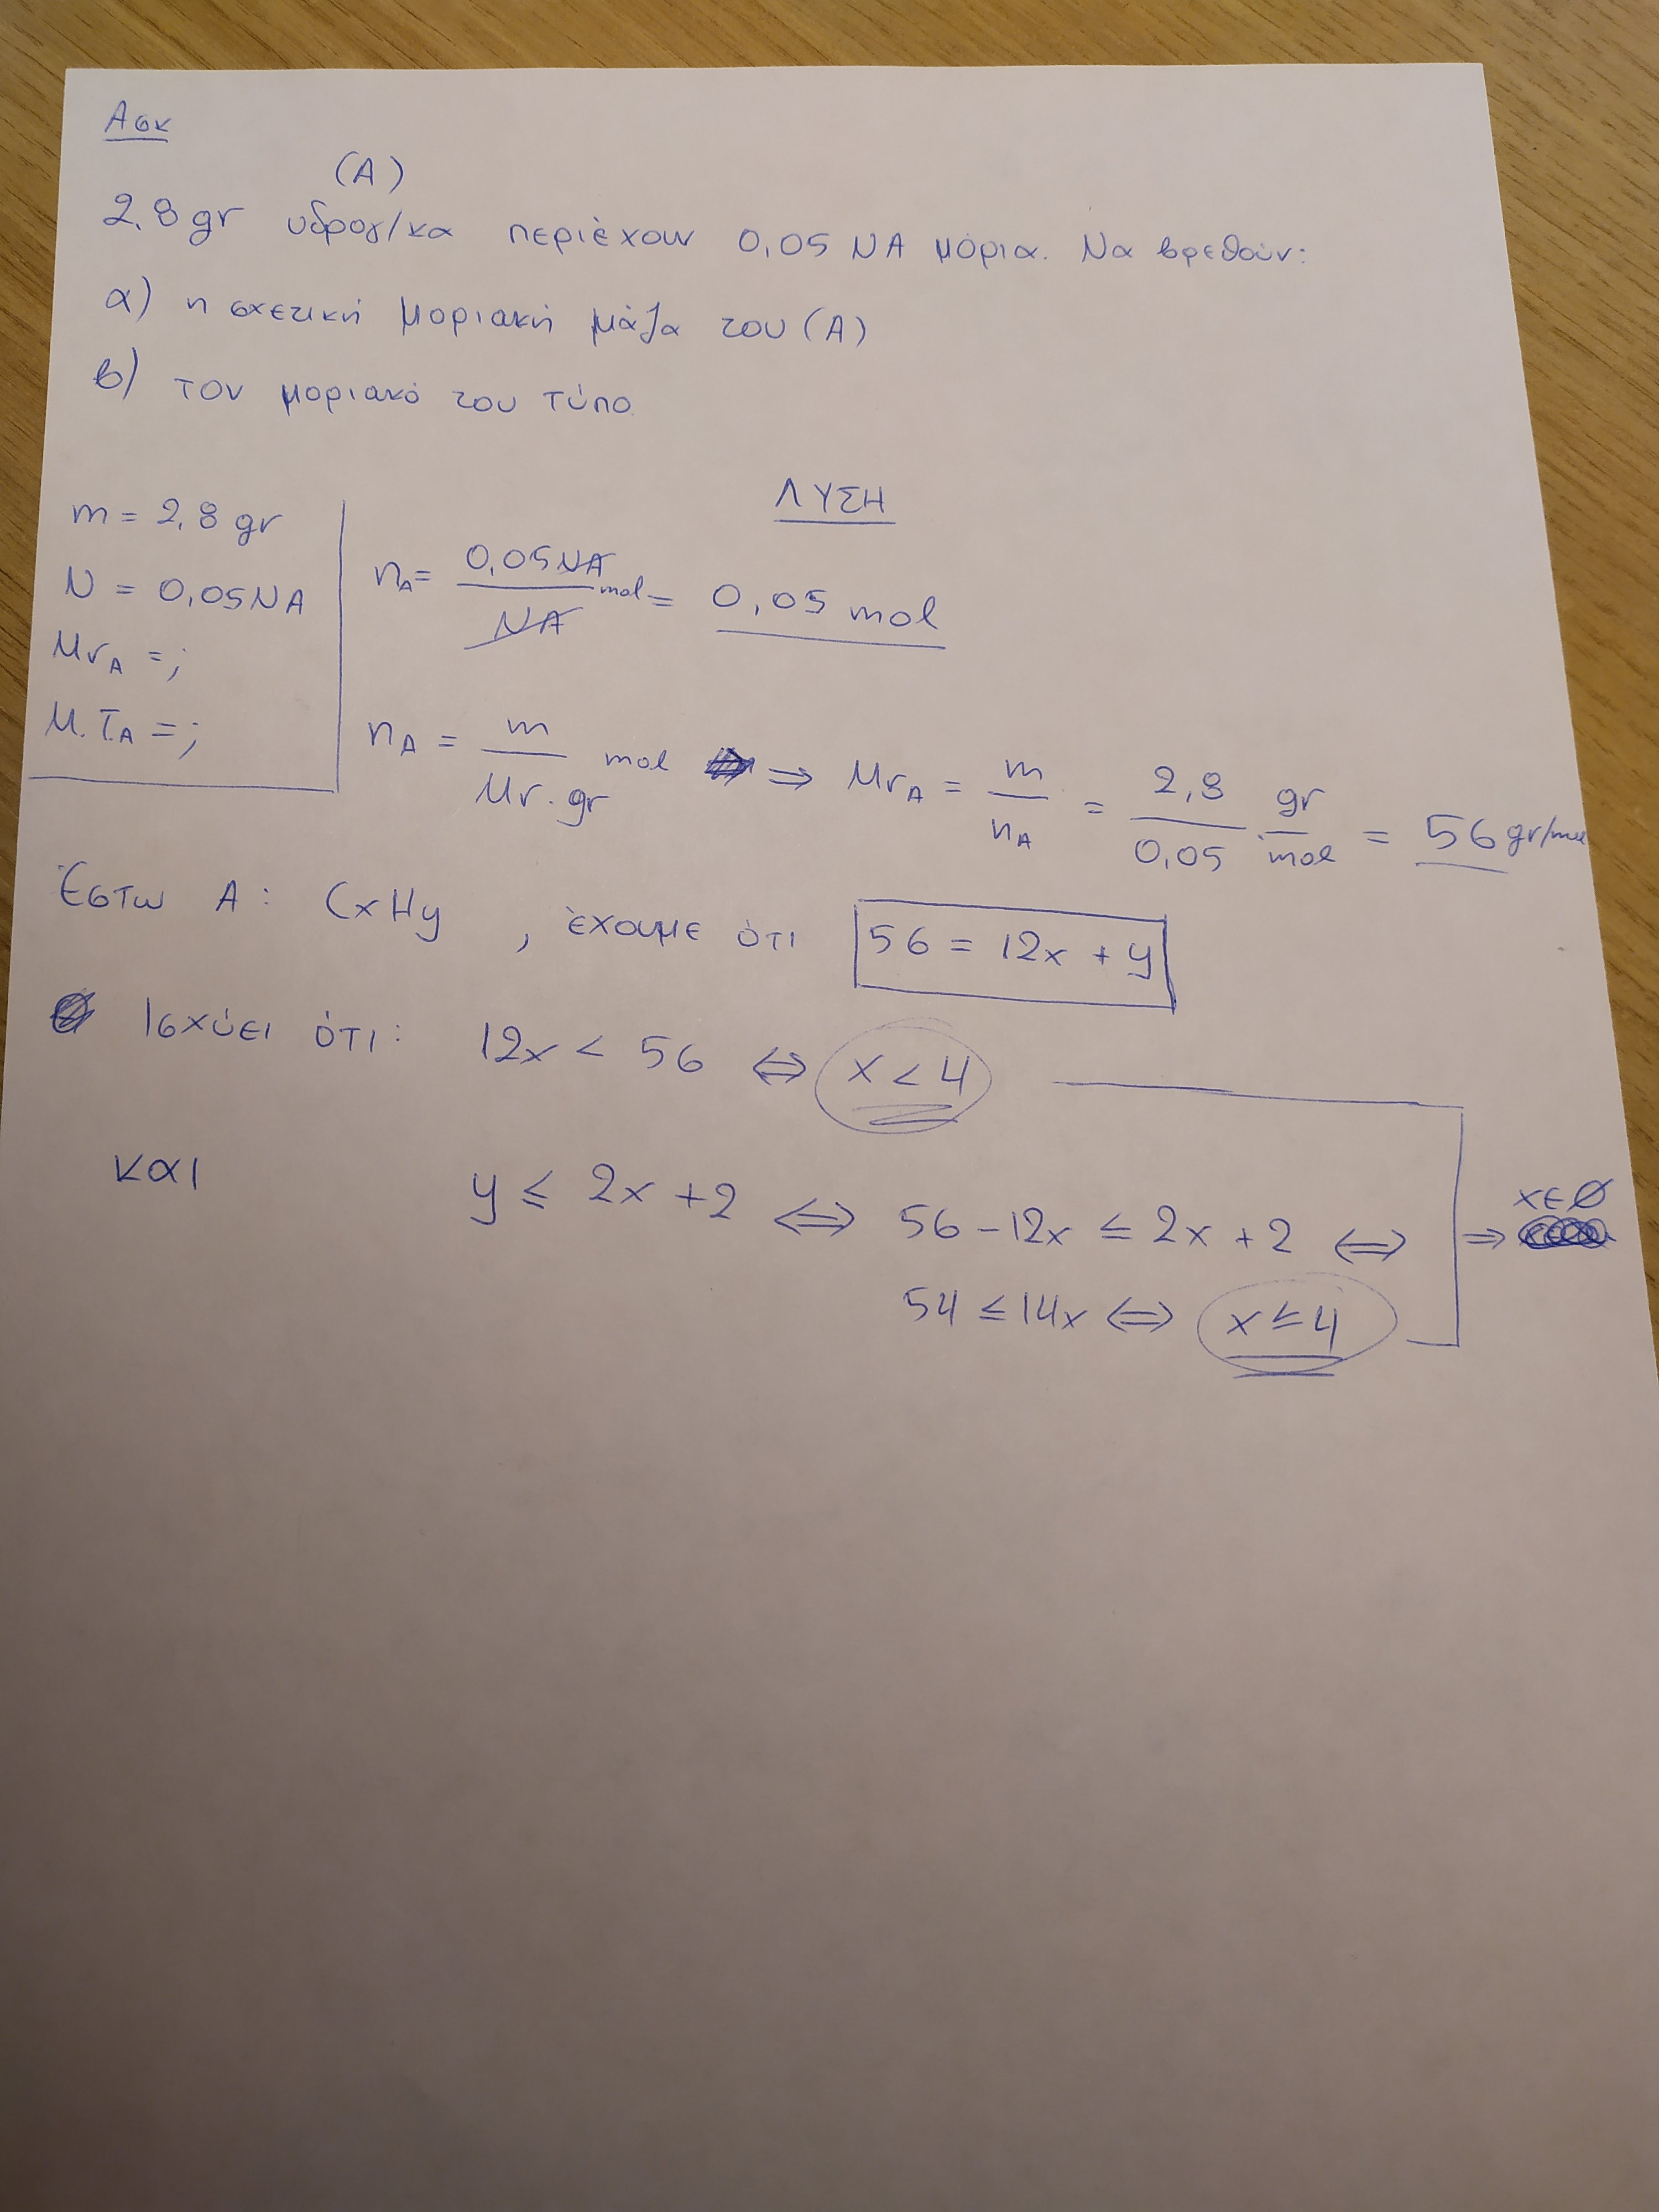 Ασκ
(A)
2,8 gr υδρογ/κα περιέχουν 0,05 NA μόρια. Να βρεθούν:
α) η σχετική μοριακή μάζα του (A)
β) τον μοριακό του τύπο
ΛΥΣΗ
m = 2,8 gr
N = 0,05NA
MrA = ;
M.T.A = ;
nA = 0,05NA / NA mol = 0,05 mol
nA = m / Mr·gr mol ⇒ MrA = m / nA = 2,8 / 0,05 gr / mol = 56 gr/mol
Έστω A: CxHy , έχουμε ότι 56 = 12x + y
Ισχύει ότι: 12x < 56 ⇔ x < 4
και y ≤ 2x + 2 ⇔ 56 - 12x ≤ 2x + 2 ⇔
⇒ x ∈ ∅
54 ≤ 14x ⇔ x ≤ 4